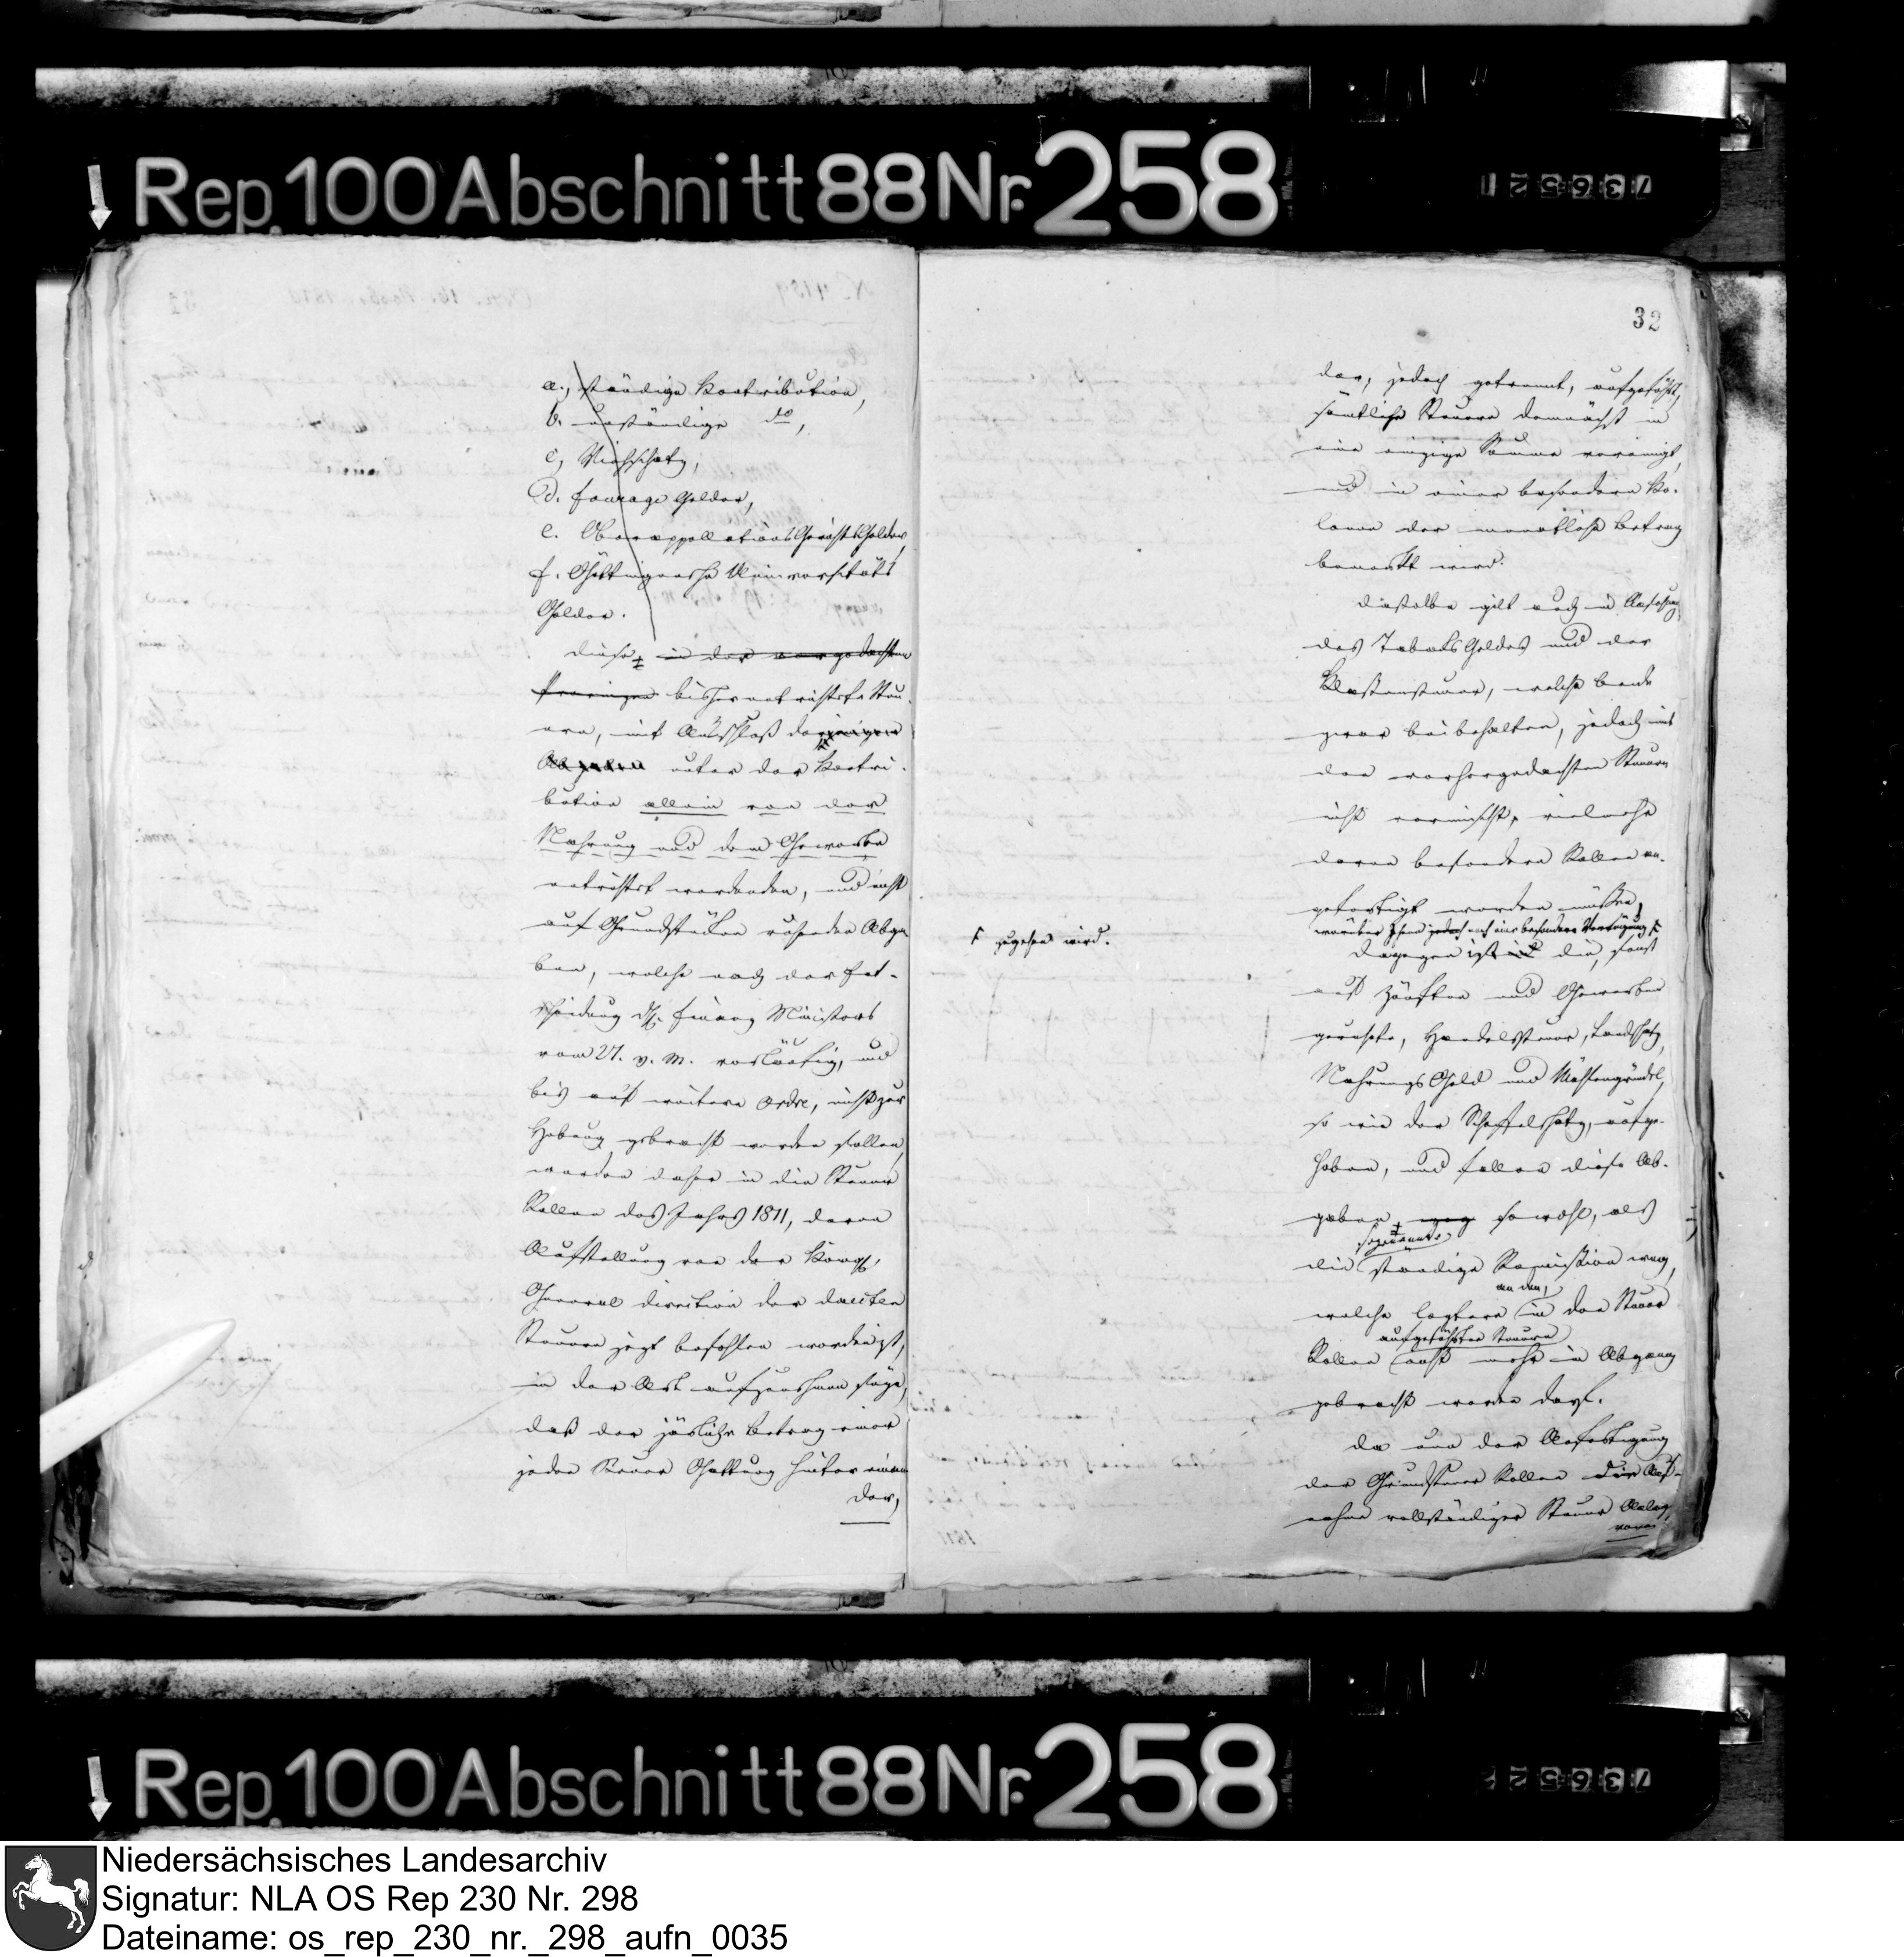 Rep. 100 Abschnitt 88 Nr. 258
736521
a., ständige Kontribution,
b. unständige do,
c, Viehschatz,
d. Fourage Gelder,
e. Oberappellations Gericht Gelder
f. Göttingensche Universitäts
Gelder.
diese in den vorgedachten
Provinzen bisher entrichtete Steu-
ern, mit Ausschluß derjenigen
Abgaben unter der Kontri-
bution allein von der
Nahrung und dem Gewerbe
entrichtet werdenden, und nicht
auf Grundstücken ruhenden Abga-
ben, welche nach der Ent-
scheidung des Finanz Ministers
vom 27. v. M. vorläufig, und
bis auf weitere Ordre, nicht zur
Hebung gebracht werden sollen,
werden daher in die Steuer
Rollen des Jahrs 1811, deren
Aufstellung von der Königl.
General direction der direkten
Steuern jetzt befohlen worden ist,
in der Art aufzunehmen seyn,
daß der jährliche Betrag einer
jeden Steuer Gattung hinter einan
der,
32
der, jedoch getrennt, aufgeführt,
sämtliche Steuern demnächst in
eine einzige Summe vereinigt,
und in einer besondern Ko-
lonne der monatliche Betrag
bemerkt wird.
dieselbe gilt auch in Ansehung
des Tabaks Geldes und der
Klassensteuer, welche beide
zwar beibehalten, jedoch mit
den vorhergedachten Steuern
nicht vermischt, vielmehr
davon besondere Rollen an-
gefertigt werden müssen,
worüber Ihnen jedoch noch eine besondere Verfügung
zugehen wird.
Dagegen ist die, sonst
auf Zünften und Gewerben
geruhete, Handelssteuer, Landschatz,
Nahrungs Geld und
so wie der Scheffelschatz, aufge-
hoben, und fallen diese Ab-
gaben weg sowohl, als
sogenannte
die ständige Remission weg,
an den,
welche letztere in den Steuer
aufgeführten Steuern
Rollen nicht mehr in Abgang
gebracht werden darf.
Da nun der Anfertigung
der Grundsteuer Rollen die Auf-
nahme vollständiger Steuer Anlag
Rep. 100 Abschnitt 88 Nr. 258
736522
Niedersächsisches Landesarchiv
Signatur: NLA OS Rep 230 Nr. 298
Dateiname: os_rep_230_nr._298_aufn_0035